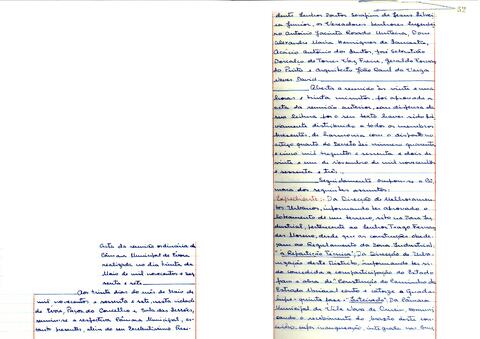 Acta da reunião ordinária da
Câmara Municipal de Évora
realizada no dia trinta de
Maio de mil novecentos e
sessenta e sete.
Aos trinta dias do mês de Maio de
mil novecentos e sessenta e sete, nesta cidade
de Évora, Paços do Concelho e Sala das Sessões,
reuniu-se a respectiva Câmara Municipal,
estando presentes, além do seu Excelentíssimo Presi-
52
dente Senhor Doutor Serafim de Jesus Silvei-
ra Júnior, os Vereadores Senhores
António Jacinto Rosado
Alexandre Maria Henriques de
Acácio António dos Santos, José Sebastião
de Torres Vaz Freire, Geraldo
do Prado e Arquitecto João Raul da Veiga
Neves David.
Aberta a reunião às vinte e uma
horas e trinta minutos, foi aprovada a
acta da reunião anterior, com dispensa de
sua leitura por o seu texto haver sido
distribuído a todos os membros
presentes, de harmonia com o disposto no
artigo quarto do Decreto-Lei número quarenta
e cinco mil trezentos e sessenta e dois de
vinte e um de Novembro de mil novecentos
e sessenta e três.
Seguidamente ocupou-se a Câ-
mara dos seguintes assuntos:
Expediente: Da Direcção de Melhoramen-
tos Urbanos, informando ter aprovado o
loteamento de um terreno, sito na Zona In-
dustrial, pertencente ao Senhor Tiago
Moreno, desde que as construções obede-
çam ao Regulamento da Zona Industrial.
"À Repartição Técnica". Da Direcção de Urba-
nização deste Distrito, informando ter si-
do concedida a comparticipação do Estado
para a obra de "Construção do Caminho da
Estrada Nacional cento e catorze a Guada-
lupe - quinta fase". "Inteirado". Da Câmara
Municipal de Vila Nova de Gaia, comuni-
cando o recebimento do
inauguração, integrada nas